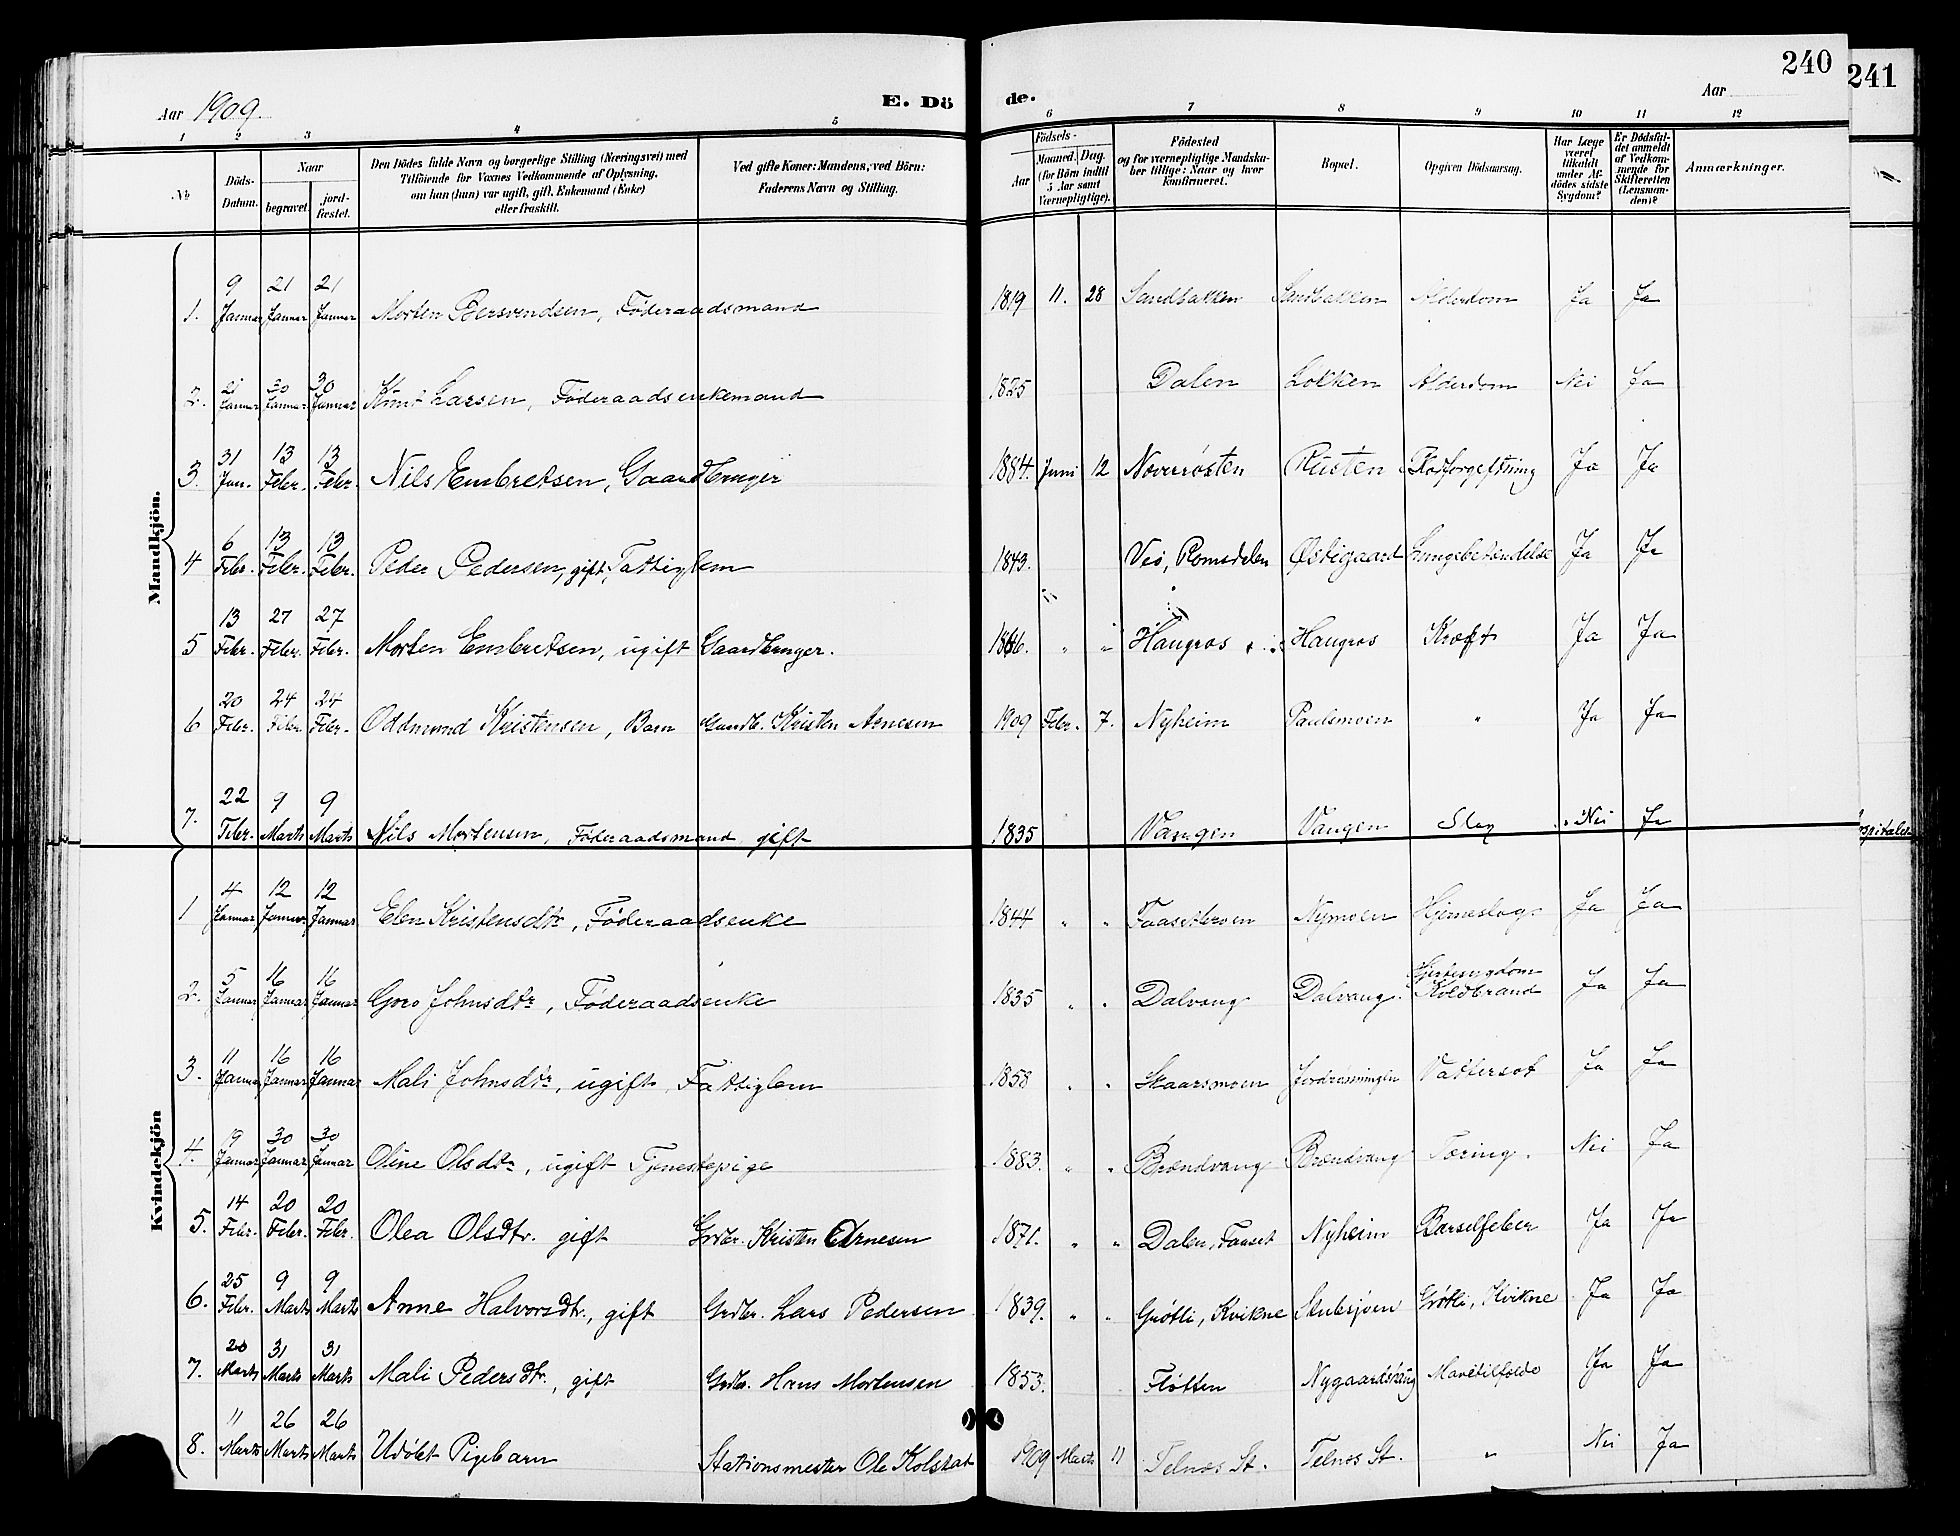 240
241
Aar 1909.
E. Dö de.
Aar
1 2 3 4 5 6 7 8 9 10 11 12
No
Döds-Datum.
Naar
begravet.
jord-fæstet.
Den Dödes fulde Navn og borgerlige Stilling (Næringsvei) med
Tilföiende for Voxnes Vedkommende af Oplysning,
om han (hun) var ugift, gift, Enkemand (Enke)
eller fraskilt.
Ved gifte Koner: Mandens, ved Börn:
Faderens Navn og Stilling.
Födsels-
Aar
Maaned. Dag.
(for Börn indtil
5 Aar samt
Værnepligtige).
Födested
og for værnepligtige Mandska-
ber tillige: Naar og hvor
konfirmeret.
Bopæl.
Opgiven Dödsaarsag.
Har Læge
været
tilkaldt
under Af-
dödes sidste
Sygdom?
Er Dödsfal-
det anmeldt
af Vedkom-
mende for
Skifteretten
(Lensman-
den)?
Anmærkninger.
Mandkjön.
1. 9 Januar 21 Januar 21 Januar Morten Bersvendsen, Føderaadsmand 1819 11. 28 Sandbakken Sandbakken Alderdom Ja Ja
2. 21 Januar 30 Januar 30 Januar Knut Larsen, Føderaadsenkemand 1825 Dalen Løkken Alderdom Nei Ja
3. 31 Jan. 13 Febr. 13 Febr. Nils Embretsen, Gaardbruger 1884. Juni 12 Noverøsten Rusten Blodforgiftning Ja Ja
4 6 Febr. 13 Febr. 13 Febr. Peder Pedersen, gift, Fattiglem 1843. Veø, Romsdalen Østigaard Lungebetændelse Ja Ja
5 13 Febr. 27 Febr. 27 Febr. Morten Embretsen, ugift Gaardbruger. 1866. " " Haugros Haugros Kræft Ja Ja
6 20 Febr. 24 Febr. 24 Febr. Oddmund Kristensen, Barn Gaardb. Kristen Arnesen 1909 Febr. 7. Nyheim Paulsmoen " Ja Ja
7. 22 Febr. 9 Marts 9 Marts Nils Mortensen, Føderaadsmand gift 1835 Vangen Vangen Slag Nei Ja
Kvindekjön
1 4 Januar 12 Januar 12 Januar Elen Kristensdtr, Føderaadsenke 1844 " " Faasetteroen Nymoen Hjerneslag Ja Ja
2. 5 Januar 16 Januar 16 Januar Goro Johnsdtr, Føderaadsenke 1835 " " Dalvang Dalvang. Hjertesygdom Koldbrand Ja Ja
3. 11 Januar 16 Januar 16 Januar Mali Johnsdtr, ugift, Fattiglem 1858 " " Skaarsmoen Jordrønningen Vattersot Ja Ja
4. 19 Januar 30 Januar 30 Januar Oline Olsdtr, ugift Tjenestepige 1883. " " Brændvang Brændvang Tæring. Nei Ja
5. 14 Febr. 20 Febr. 20 Febr. Olea Olsdtr. gift Grdbr. Kristen Arnesen 1871. " " Dalen, Faaset Nyheim Barselfeber Ja Ja
6. 25 Febr. 9 Marts 9 Marts Anne Halvorsdtr., gift Grdbr. Lars Pedersen 1839. " " Grøtli, Kvikne Stubsjøen Grøtli, Kvikne Ja Ja
7. 20 Marts 31 Marts 31 Marts Mali Pedersdtr., gift Grdbr. Hans Mortensen 1853. Fløtten Nygaardshaug Mavetilfælde Ja Ja
8. 11 Marts 26 Marts 26 Marts Udøbt Pigebarn Stationsmester Ole Kolstad 1909 Marts 11 Telnes St. Telnes St. " Nei Ja